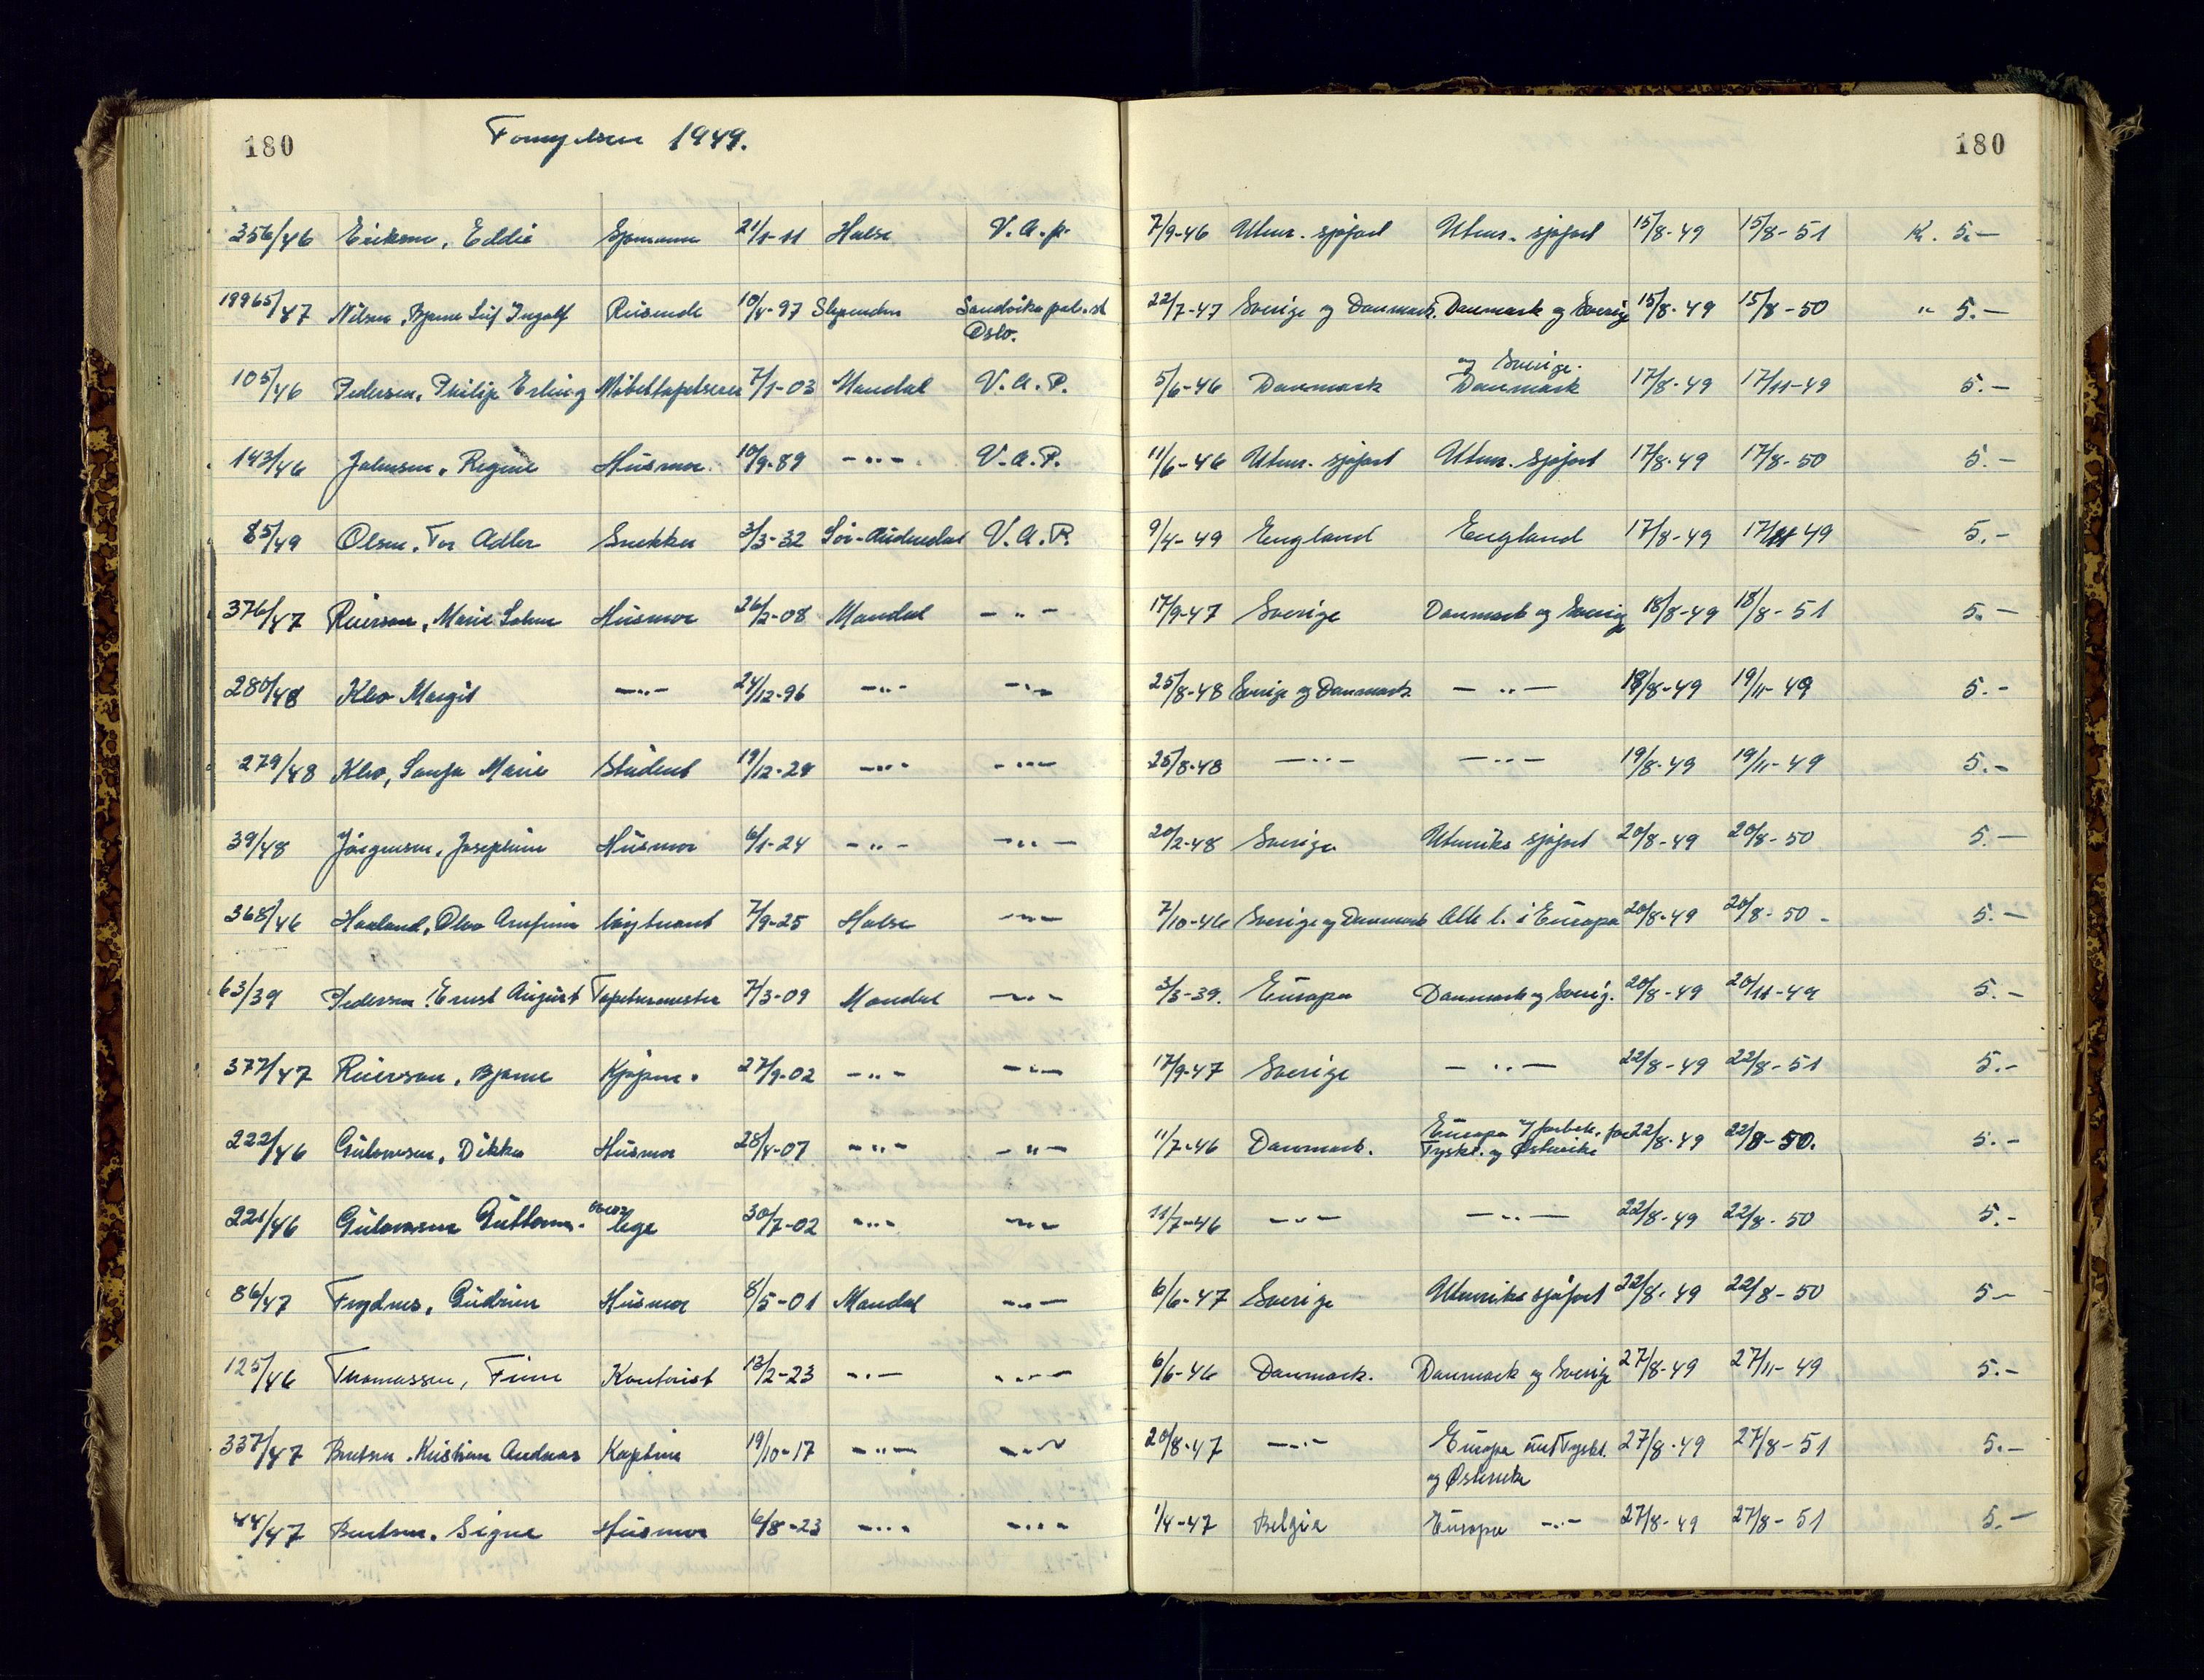 180 Fornyelser 1949. 180
356/46 Eriksen, Eddie Sjømann 21/1-11 Halse V.a.p. 7/9-46 Utenr. sjøfart Utenr. sjøfart 15/8-49 15/8-51 Kr. 5.-
19965/47 Nilsen, Bjarne Leif Ingolf Reisende 10/4-97 Slependen Sandvika pol.st 22/7-47 Sverige og Danmark. Danmark og Sverige 15/8-49 15/8-50 " 5.-
Oslo.
og Sverige.
105/46 Pedersen, Philip Erling Møbeltapetserer 7/1-03 Mandal V.A.P. 5/6-46 Danmark Danmark 17/8-49 17/11-49 5.-
143/46 Johnsen, Regine Husmor 10/9-89 -"- V.A.P. 11/6-46 Utenr. sjøfart Utenr. Sjøfart 17/8-49 17/8-50 5.-
85/49 Olsen, Tor Adler Snekker 3/3-32 Sør-Audnedal V.A.P. 9/4-49 England England 17/8-49 17/11-49 5.-
376/47 Reierson, Marie Husmor 26/2-08 Mandal -"- 17/9-47 Sverige Danmark og Sverige 18/8-49 18/8-51 5.-
280/48 Klev Margit -"- 24/12-96 -"- -"- 25/8-48 Sverige og Danmark -"- 18/8-49 19/11-49 5.-
279/48 Klev, Marie Student 19/12-29 -"- -"- 25/8-48 -"- -"- 19/8-49 19/11-49 5.-
39/48 Jørgensen, Josephine Husmor 6/1-24 -"- -"- 20/2-48 Sverige Utenriks sjøfart 20/8-49 20/8-50 5.-
368/46 Haaland, Olav Arnfinn løytnant 7/9-25 Halse -"- 7/10-46 Sverige og Danmark Alle l. i Europa 20/8-49 20/8-50 - 5.-
63/39 Pedersen, Ernst August Tapetserermester 7/3-09 Mandal -"- 3/3-39. Europa Danmark og Sverig. 20/8-49 20/11-49 5.-
377/47 Reierson, Bjarne Kjøpm. 27/9-02 -"- -"- 17/9-47 Sverige -"- 22/8-49 22/8-51 5.-
222/46 Gulowsen, Dikka Husmor 28/4-07 -"- -"- 11/7-46 Danmark. Europa m/forbeh. for 22/8-49 22/8-50. 5.-
Tyskl. og Østerrike
221/46 Gulowsen Guttorm. lege 30/7-02 -"- -"- 11/7-46 -"- -"- 22/8-49 22/8-50 5.-
86/47 Frydnes, Gudrun Husmor 8/5-01 Mandal -"- 6/6-47 Sverige Utenriks sjøfart 22/8-49 22/8-50 5.-
125/46 Thomassen, Finn Kontorist 13/2-23 -"- -"- 6/6-46 Danmark. Danmark og Sverige 27/8-49 27/11-49 5.-
337/47 Bentsen, Kristian Andreas Kaptein 19/10-17 -"- -"- 20/8-47 -"- Europa unt Tyskl. 27/8-49 27/8-51 5.-
og Østerrike
44/47 Bentsen, Signe Husmor 6/8-23 -"- -"- 1/4-47 Belgia Europa -"- 27/8-49 27/8-51 5.-